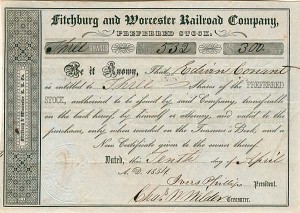 Fitchburg and Worcester Railroad Company,
PREFERRED STOCK.
Three SHARES 532 300
Be it Known, That Edwin Conant
is entitled to Three Shares of the PREFERRED
STOCK, authorized to be issued by said Company, transferable
on the back hereof by himself or attorney, and valid to the
purchaser, only when recorded on the Treasurer's Book, and a
New Certificate given to the owner thereof.
Dated, this Tenth day of April
A.D. 1854
Ivers Phillips President.
Chas. W. Wilder Treasurer.